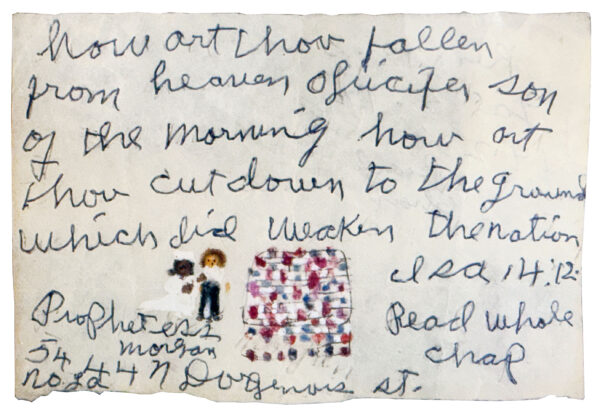 how art thou fallen
from heaven O lucifer son
of the morning how art
thou cut down to the ground
which did weaken the nation
Isa 14:12
Prophetess
Morgan
Read whole
chap
5444 N Dorgenois st.